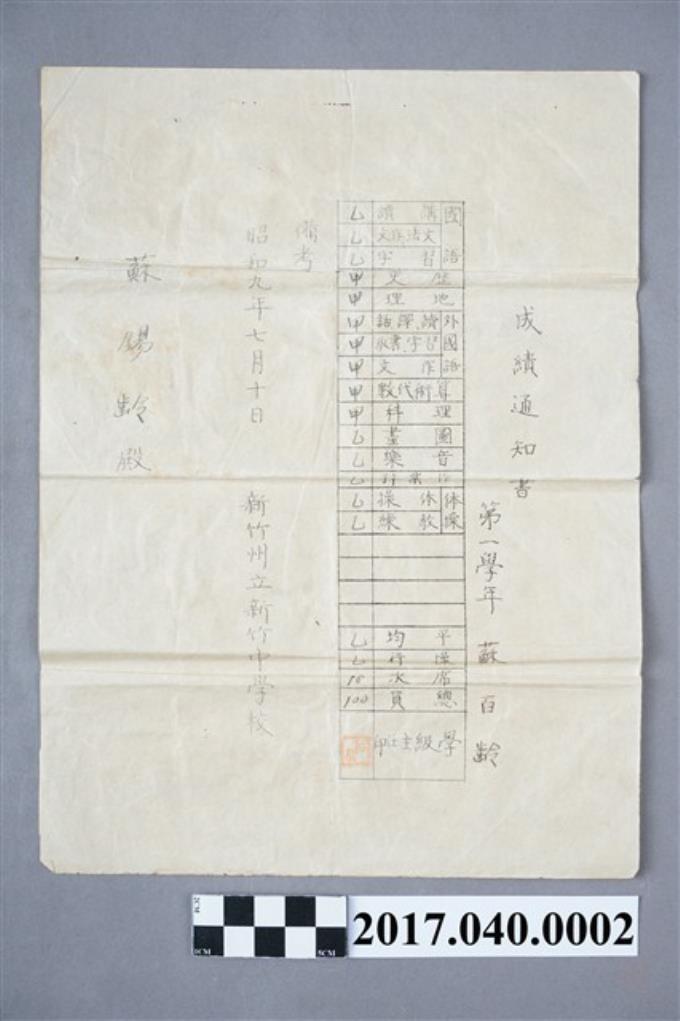 成績通知書
第一學年 蘇百齡
國語 講讀 乙
文法作文 乙
習字 乙
歷史 甲
地理 甲
外國語 讀、譯、話 甲
習字、書取 甲
作文 甲
算術代數 甲
理科 甲
圖畫 乙
音樂 乙
作業 乙
体操 体操 乙
教練 乙
平均 乙
操行 乙
席次
總員 100
學級主任印
備考
昭和九年七月十日
新竹州立新竹中学校
蘇錫齡殿
2CM
1CM
5CM
2017.040.0002